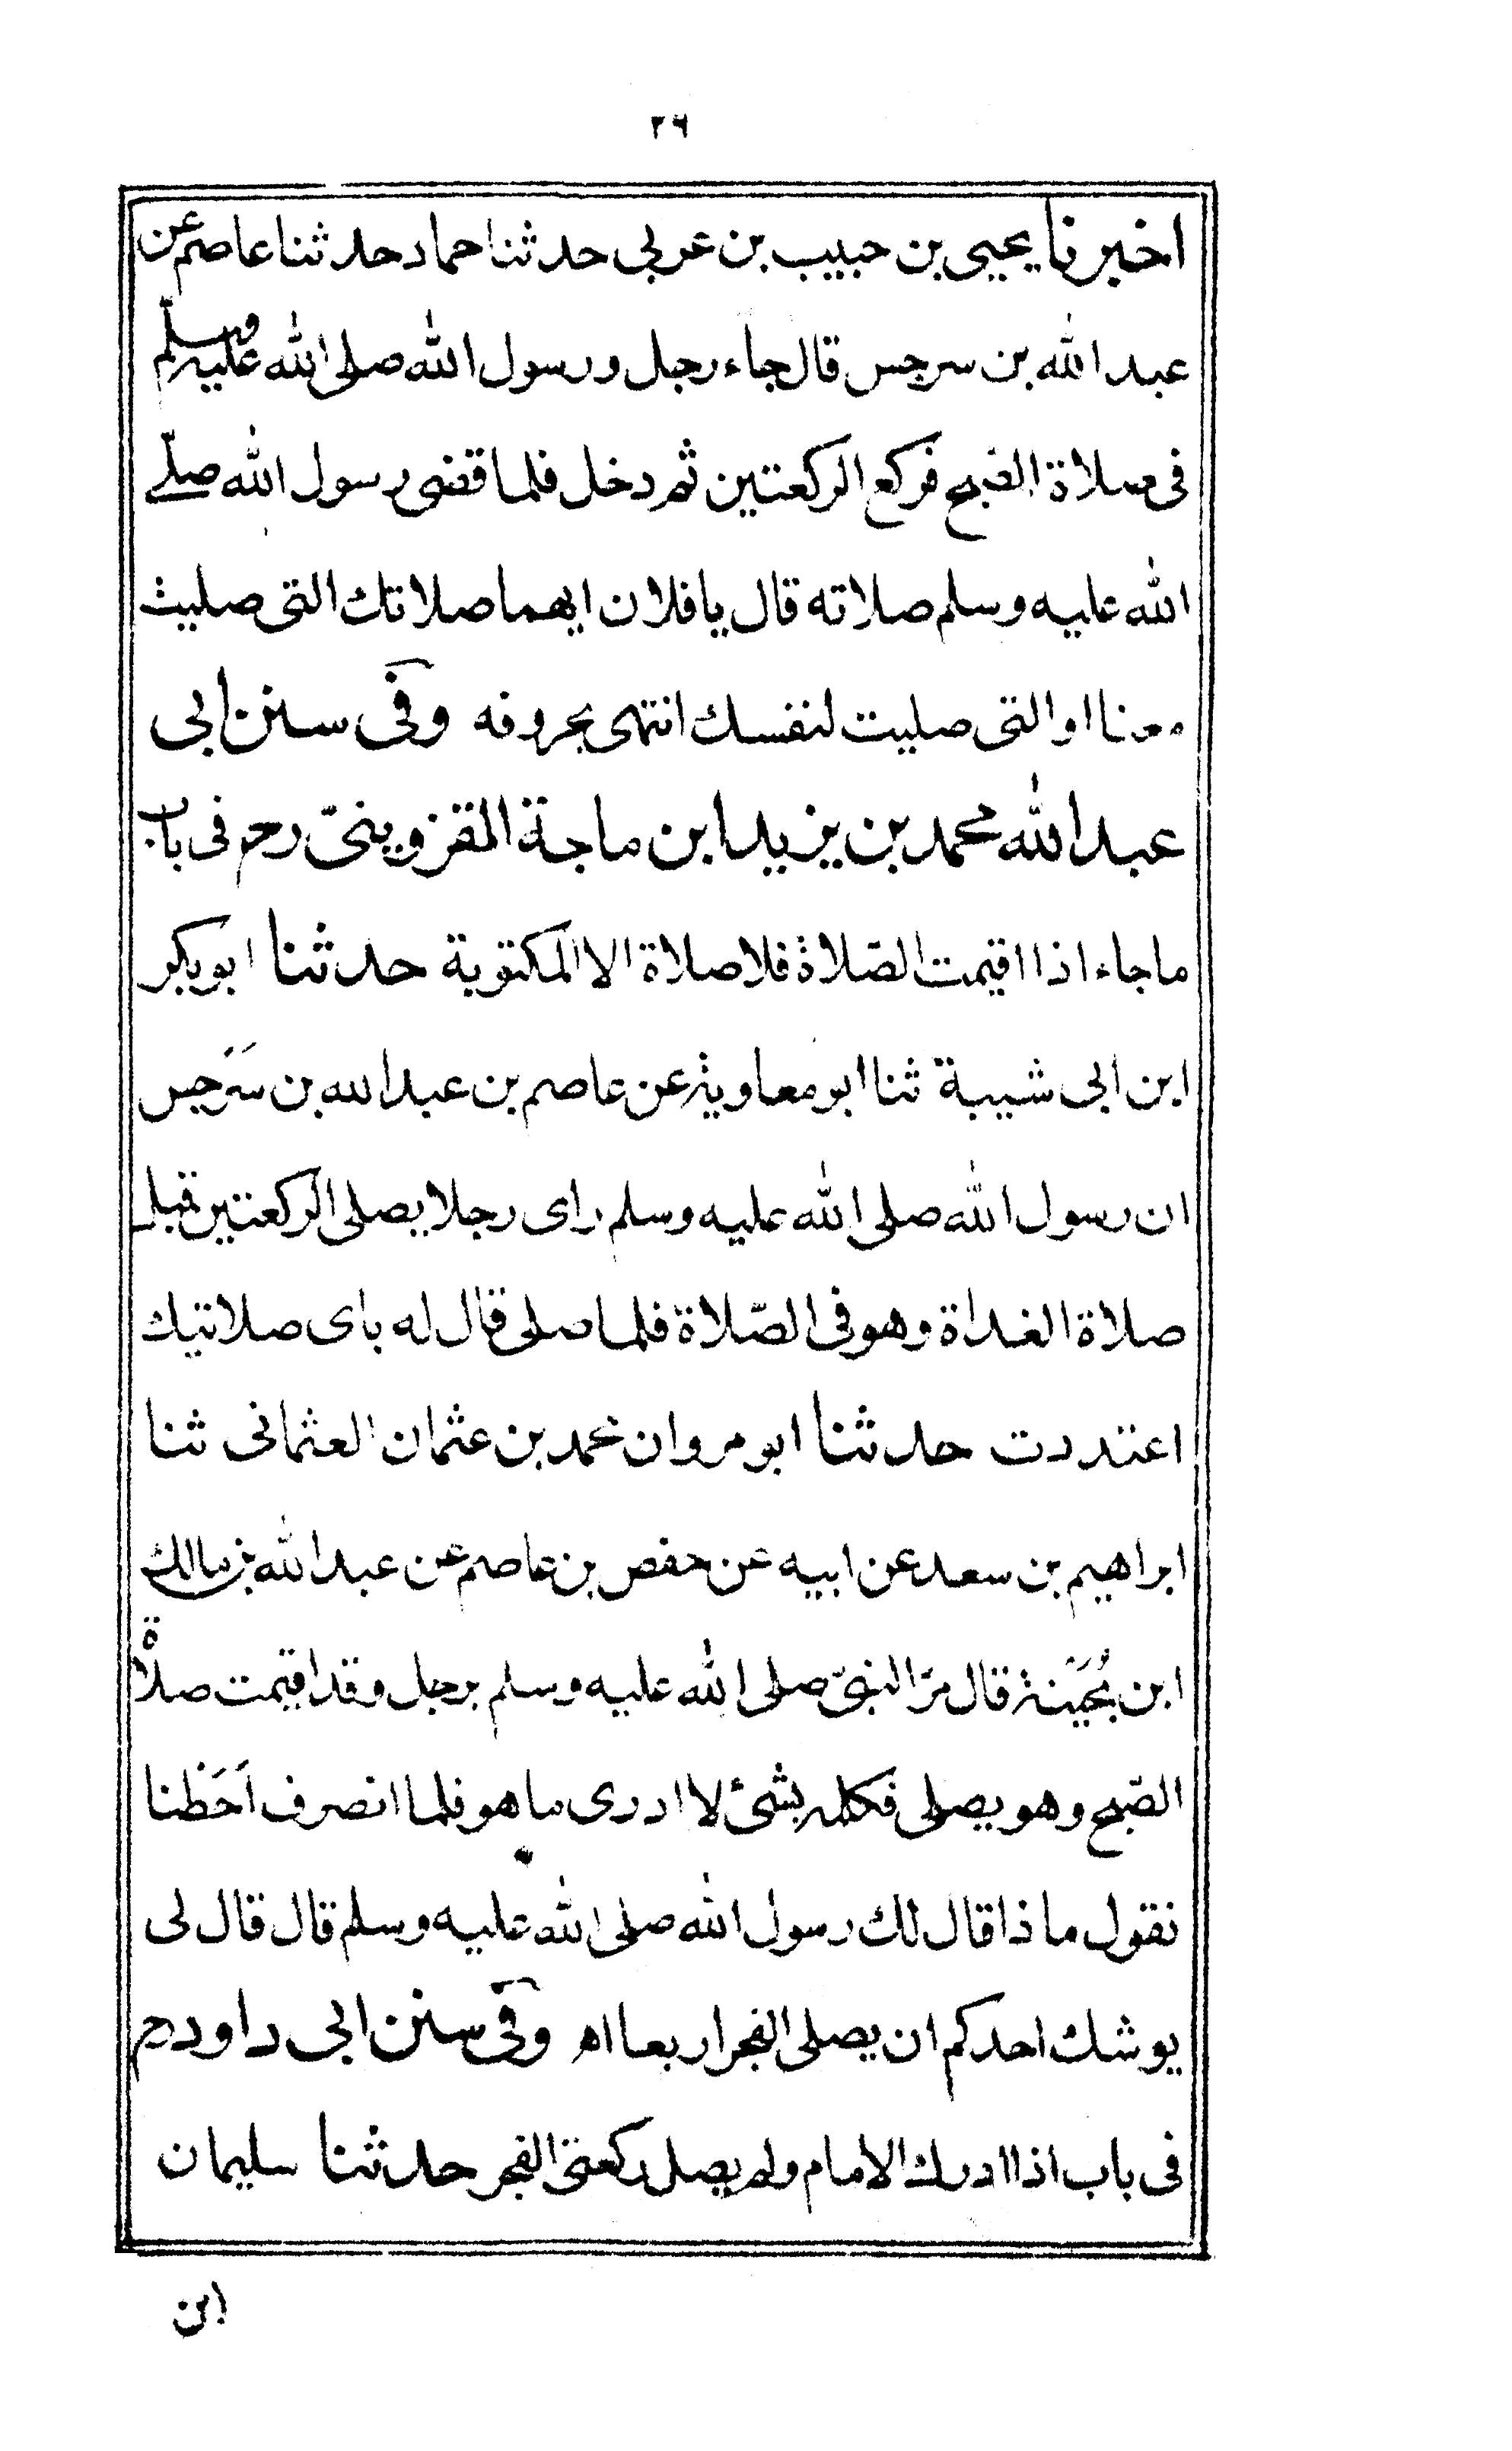 ٢٦
اخبرنا يحيى بن حبيب بن عربي حدثنا حماد حدثنا عاصم عن
عبد الله بن سرجس قال جاء رجل ورسول الله صلى الله عليه وسلم
فى صلاة الصّبح فركع الركعتين ثم دخل فلما قضى رسول الله صلّے
الله عليه وسلم صلاته قال يا فلان ايهما صلاتك التى صليت
معنا او التى صليت لنفسك انتهى بحروفه وفى سنن ابى
عبد الله محمد بن يزيد ابن ماجة القزوينىّ رحم فى باب
ما جاء اذا اقيمت الصّلاة فلا صلاة الا المكتوبة حدثنا ابو بكر
ابن ابى شيبة ثنا ابو معاوية عن عاصم بن عبد الله بن سَرَجس
ان رسول الله صلى الله عليه وسلم راى رجلا يصلى الركعتين قبل
صلاة الغداة وهو فى الصّلاة فلما صلى قال له باى صلاتيك
اعتددت حدثنا ابو مروان محمد بن عثمان العثمانى ثنا
ابراهيم بن سعد عن ابيه عن حفص بن عاصم عن عبد الله بن مالك
ابن بُحَيْنة قال مرّ النبىّ صلى الله عليه وسلم برجل وقد اقيمت صلاة
الصّبح وهو يصلى فكلمه بشئ لا ادرى ما هو فلما انصرف اَحَطنا
نقول ما ذا قال لك رسول الله صلى الله عليه وسلم قال قال لى
يوشك احدكم ان يصلى الفجر اربعا اه وفى سنن ابى داود رح
فى باب اذا ادرك الامام ولم يصل ركعتى الفجر حدثنا سليمان
ابن